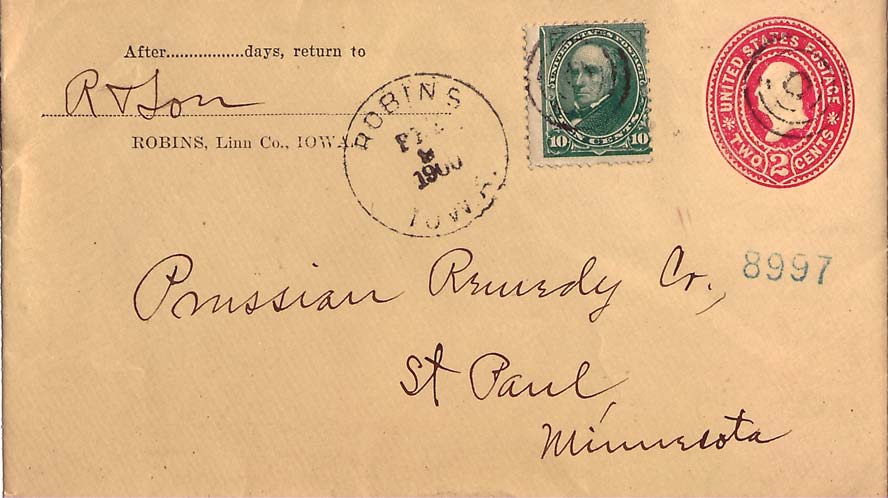 After.................days, return to
R & Son
ROBINS, Linn Co., IOWA.
ROBINS
FEB
8
1900
IOWA.
UNITED STATES POSTAGE
10 CENTS 10
UNITED STATES POSTAGE
TWO 2 CENTS
8997
Prussian Remedy Co.,
St Paul,
Minnesota